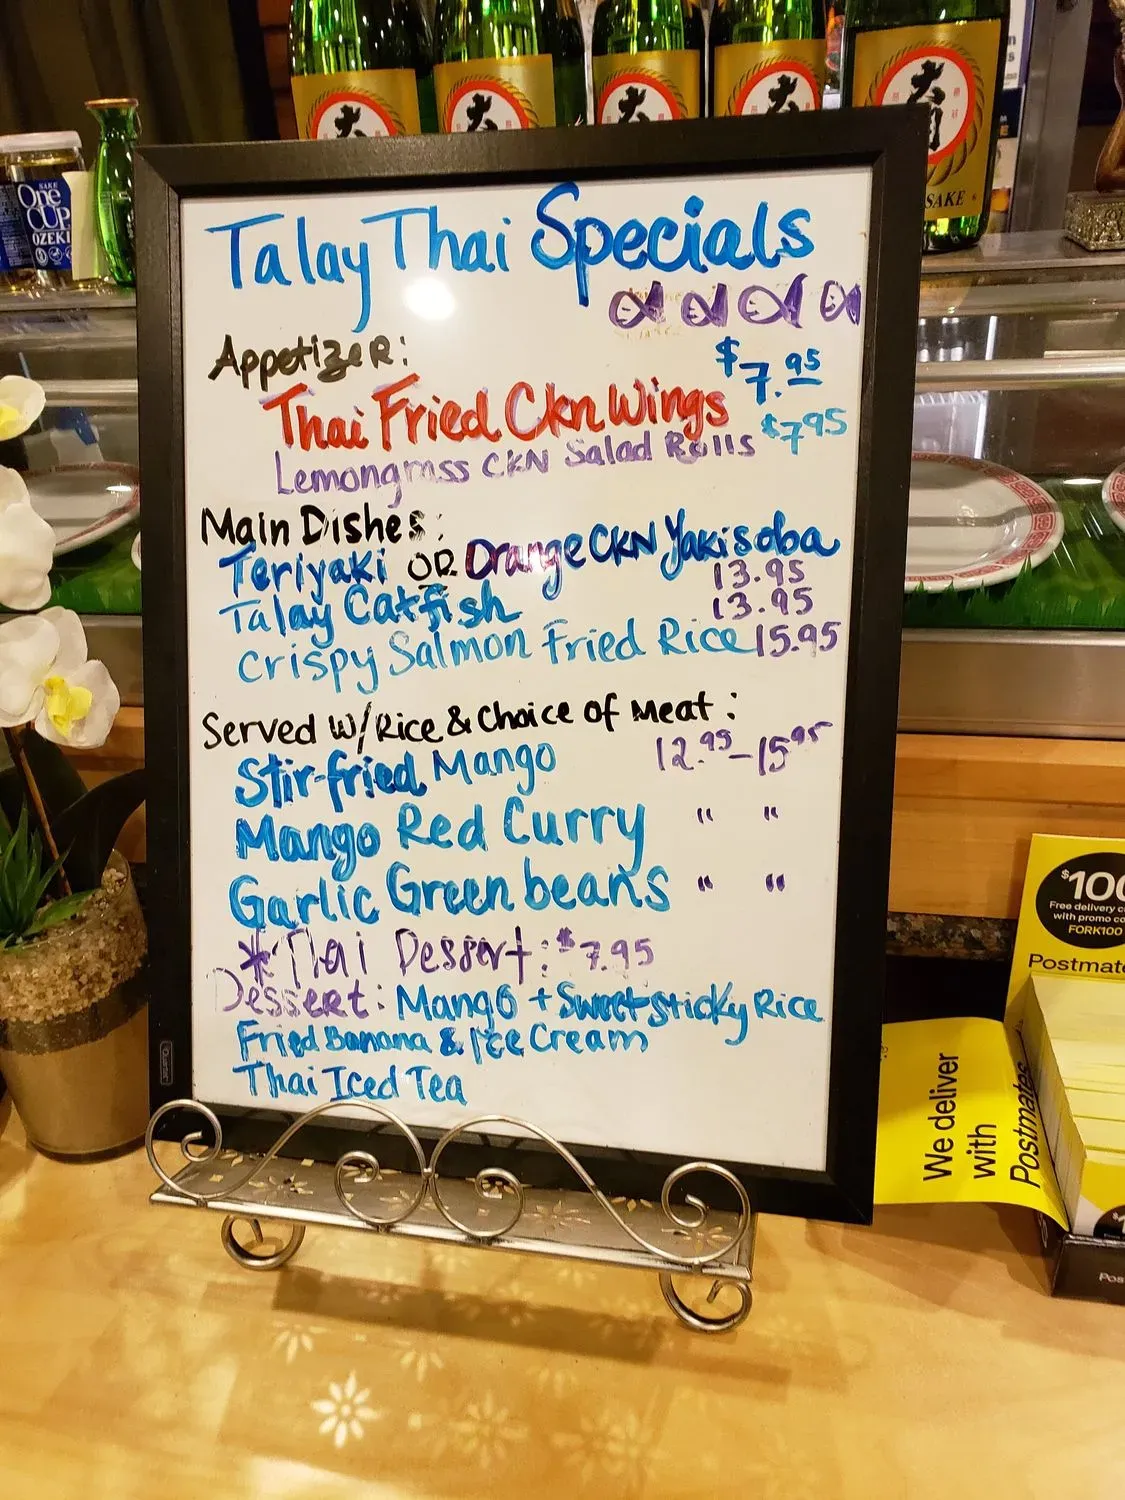 Talay Thai Specials
Appetizer:
$7.95
Thai Fried Ckn Wings
Lemongrass CKN Salad Rolls $7.95
Main Dishes:
Teriyaki OR Orange CKN Yakisoba
13.95
Talay Catfish 13.95
Crispy Salmon Fried Rice 15.95
Served w/Rice & Choice of Meat:
Stir-fried Mango 12.95-15.95
Mango Red Curry " "
Garlic Green beans " "
*Thai Dessert: $7.95
Dessert: Mango + Sweet sticky Rice
Fried Banana & Ice Cream
Thai Iced Tea
Quartet
SAKE
One
CUP
OZEKI
大関
SAKE
$100
Free delivery
with promo
FORK100
Postmates
We deliver
with
Postmates